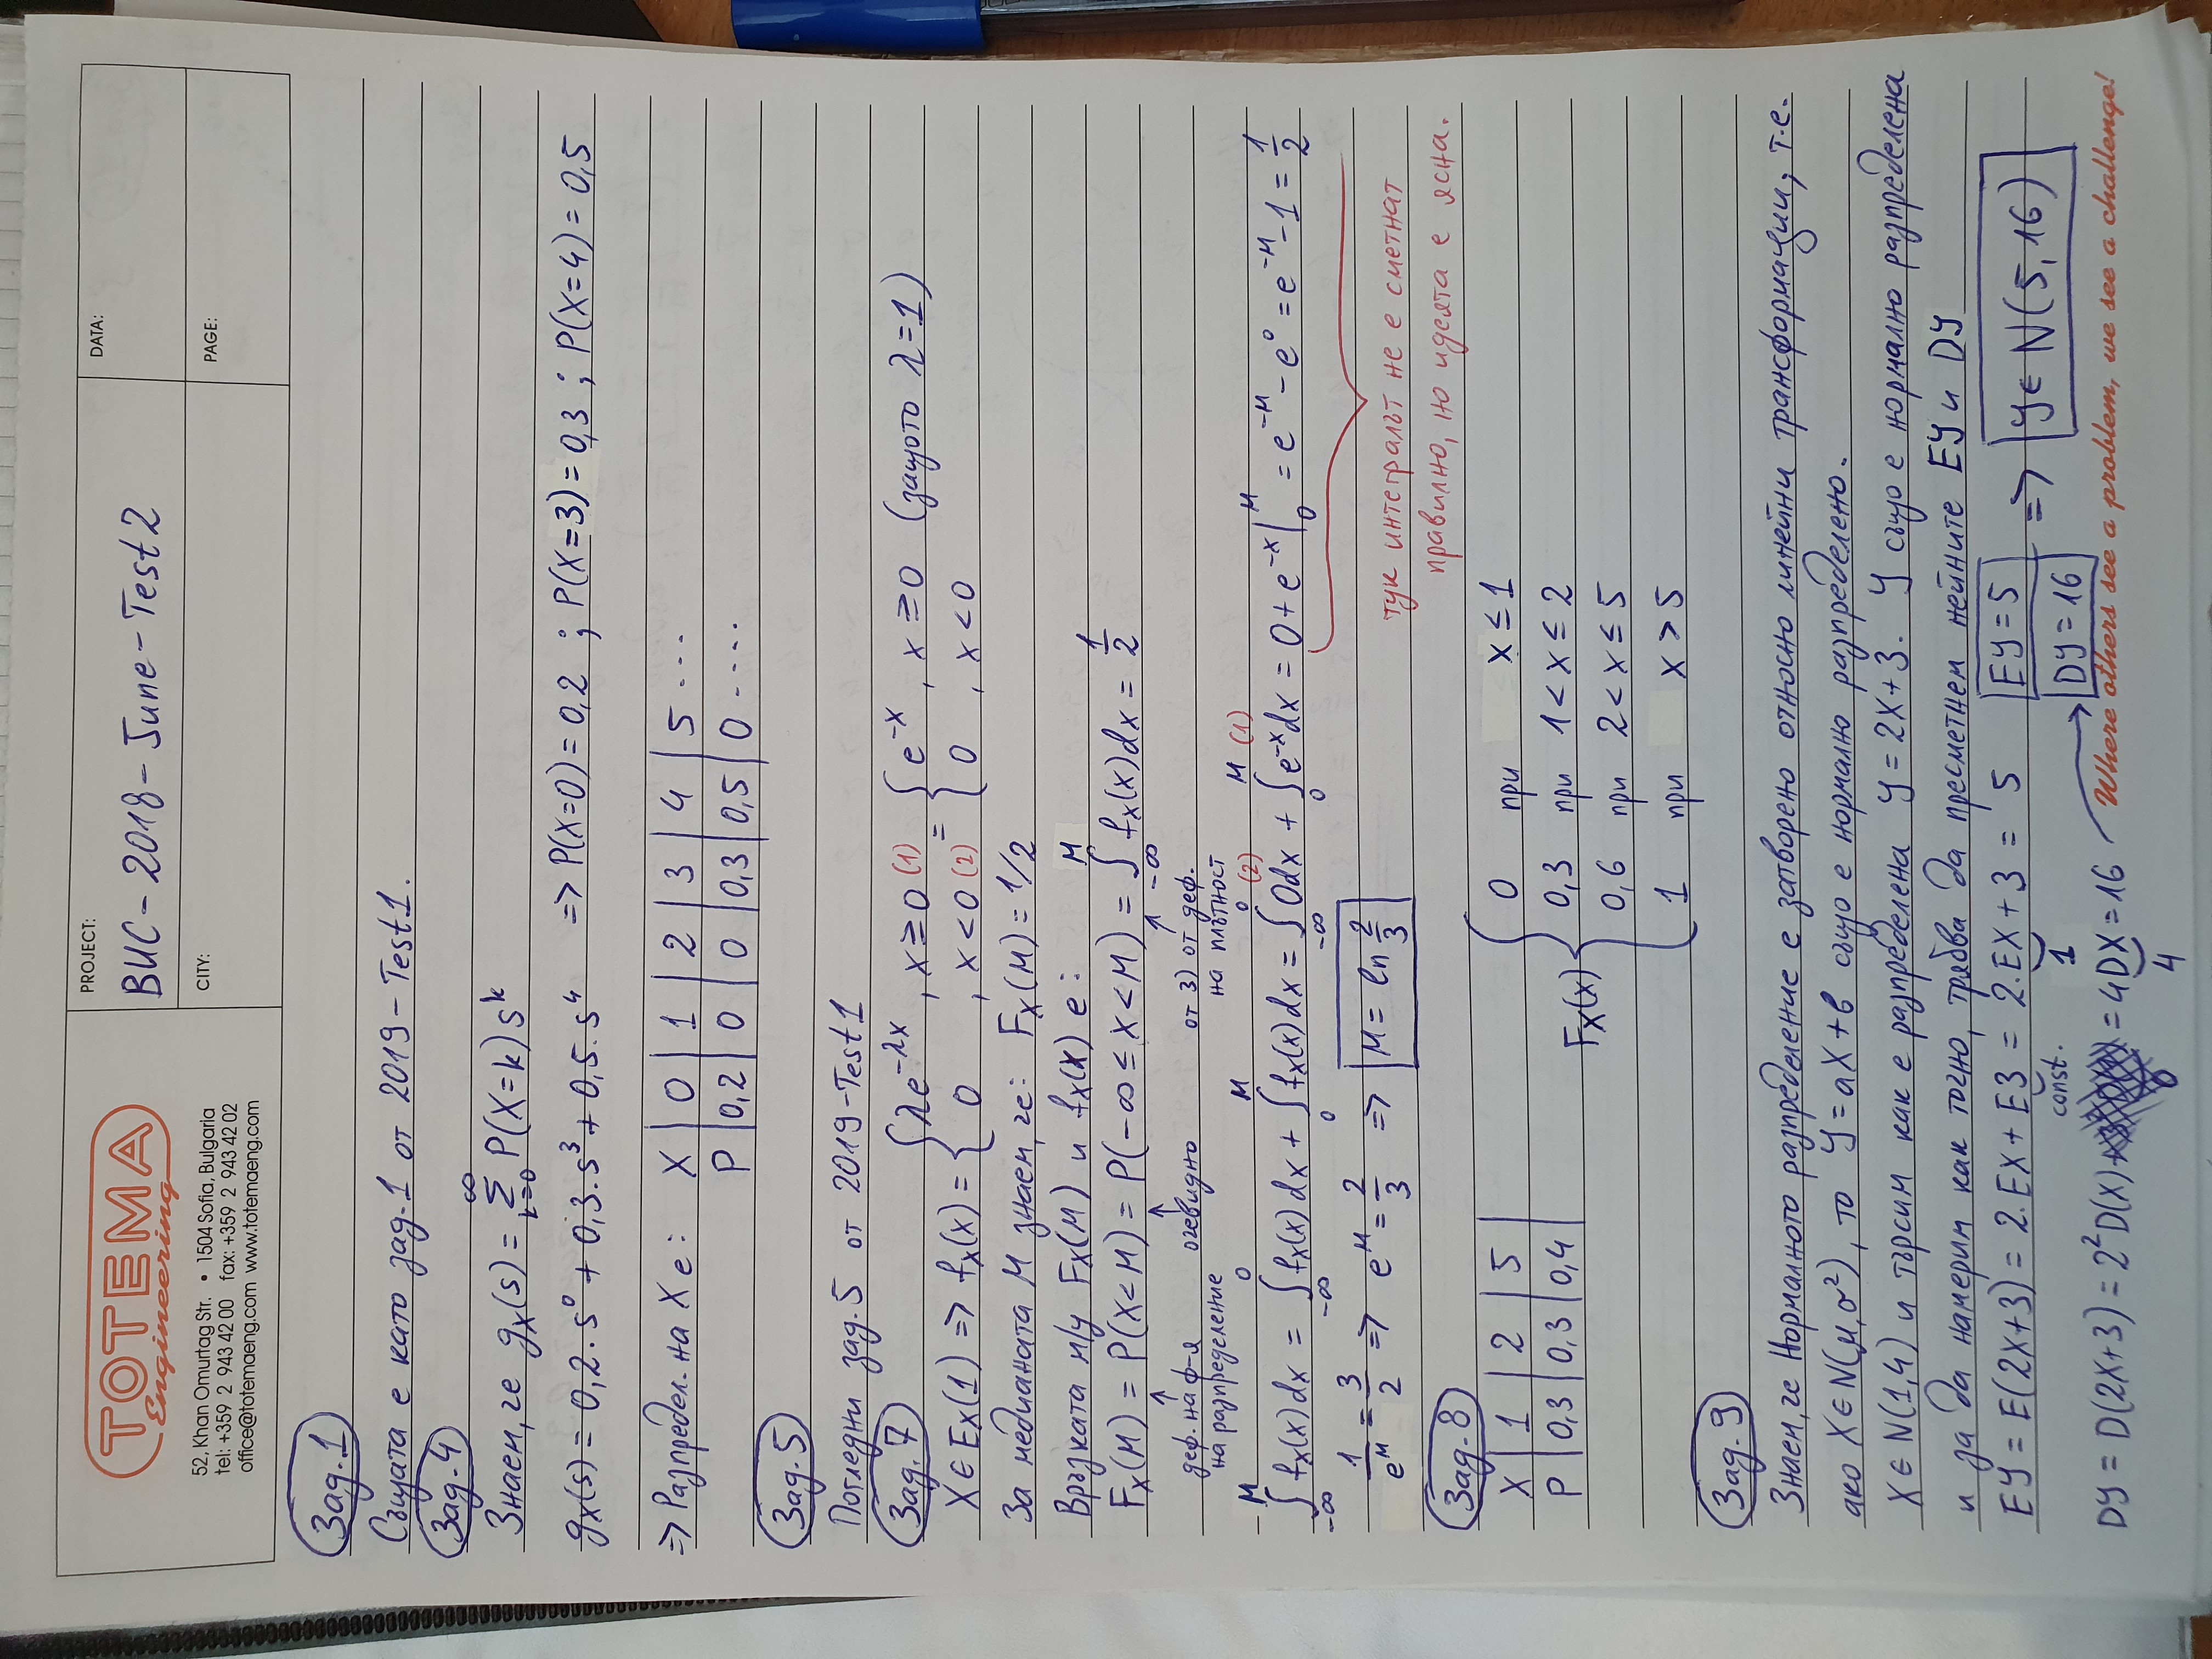 TOTEMA
Engineering
52, Khan Omurtag Str. • 1504 Sofia, Bulgaria
tel: +359 2 943 42 00 fax: +359 2 943 42 02
office@totemaeng.com www.totemaeng.com
PROJECT:
ВИС - 2018 - June - Test 2
DATA:
CITY:
PAGE:
Зад.1
Същата е като зад.1 от 2019 - Test 1.
Зад.4
Знаем, че g_X(s) = ∑_{k=0}^{∞} P(X=k) s^k
g_X(s) = 0,2.s^0 + 0,3.s^3 + 0,5.s^4 => P(X=0) = 0,2 ; P(X=3) = 0,3 ; P(X=4) = 0,5
=> Разпредел. на X е: X | 0 | 1 | 2 | 3 | 4 | 5 ...
P | 0,2 | 0 | 0 | 0,3 | 0,5 | 0 ....
Зад.5
Погледни зад.5 от 2019-Test 1
Зад.7
X ∈ Ex(1) => f_X(x) = { λe^{-λx} , x ≥ 0 (1) = { e^{-x} , x ≥ 0 (защото λ=1)
0 , x < 0 (2) 0 , x < 0
За медианата M знаем, че: F_X(M) = 1/2
Връзката м/у F_X(M) и f_X(x) е:
F_X(M) = P(X<M) = P(-∞ ≤ X < M) = ∫_{-∞}^{M} f_X(x)dx = 1/2
деф. на ф-я очевидно от 3) от деф.
на разпределение на плътност
∫_{-∞}^{M} f_X(x)dx = ∫_{-∞}^{0} f_X(x)dx + ∫_{0}^{M} f_X(x)dx = ∫_{-∞}^{0 (2)} 0dx + ∫_{0}^{M (1)} e^{-x}dx = 0 + e^{-x}|_0^M = e^{-M} - e^0 = e^{-M} - 1 = 1/2
1/e^M = 3/2 => e^M = 2/3 => M = ln 2/3
тук интегралът не е сметнат
правилно, но идеята е ясна.
Зад.8
X | 1 | 2 | 5 |
P | 0,3 | 0,3 | 0,4 |
F_X(x) { 0 при x ≤ 1
0,3 при 1 < x ≤ 2
0,6 при 2 < x ≤ 5
1 при x > 5
Зад.9
Знаем, че Нормалното разпределение е затворено относно линейни трансформации, т.е.
ако X ∈ N(μ,σ²), то Y = aX + b също е нормално разпределено.
X ∈ N(1,4) и търсим как е разпределена Y = 2X+3. Y също е нормално разпределена
и за да намерим как точно, трябва да пресметнем нейните EY и DY
EY = E(2X+3) = 2.EX + E3 = 2.EX + 3 = 5 EY = 5 => Y ∈ N(5,16)
const. 1 DY = 16
DY = D(2X+3) = 2²D(X) = 4DX = 16
0 4
Where others see a problem, we see a challenge!